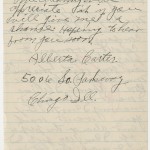 appreciate it if you
will give me a
chance hoping to hear
from you soon
Alberta Carter
5006 So. Parkway
Chicago Ill.